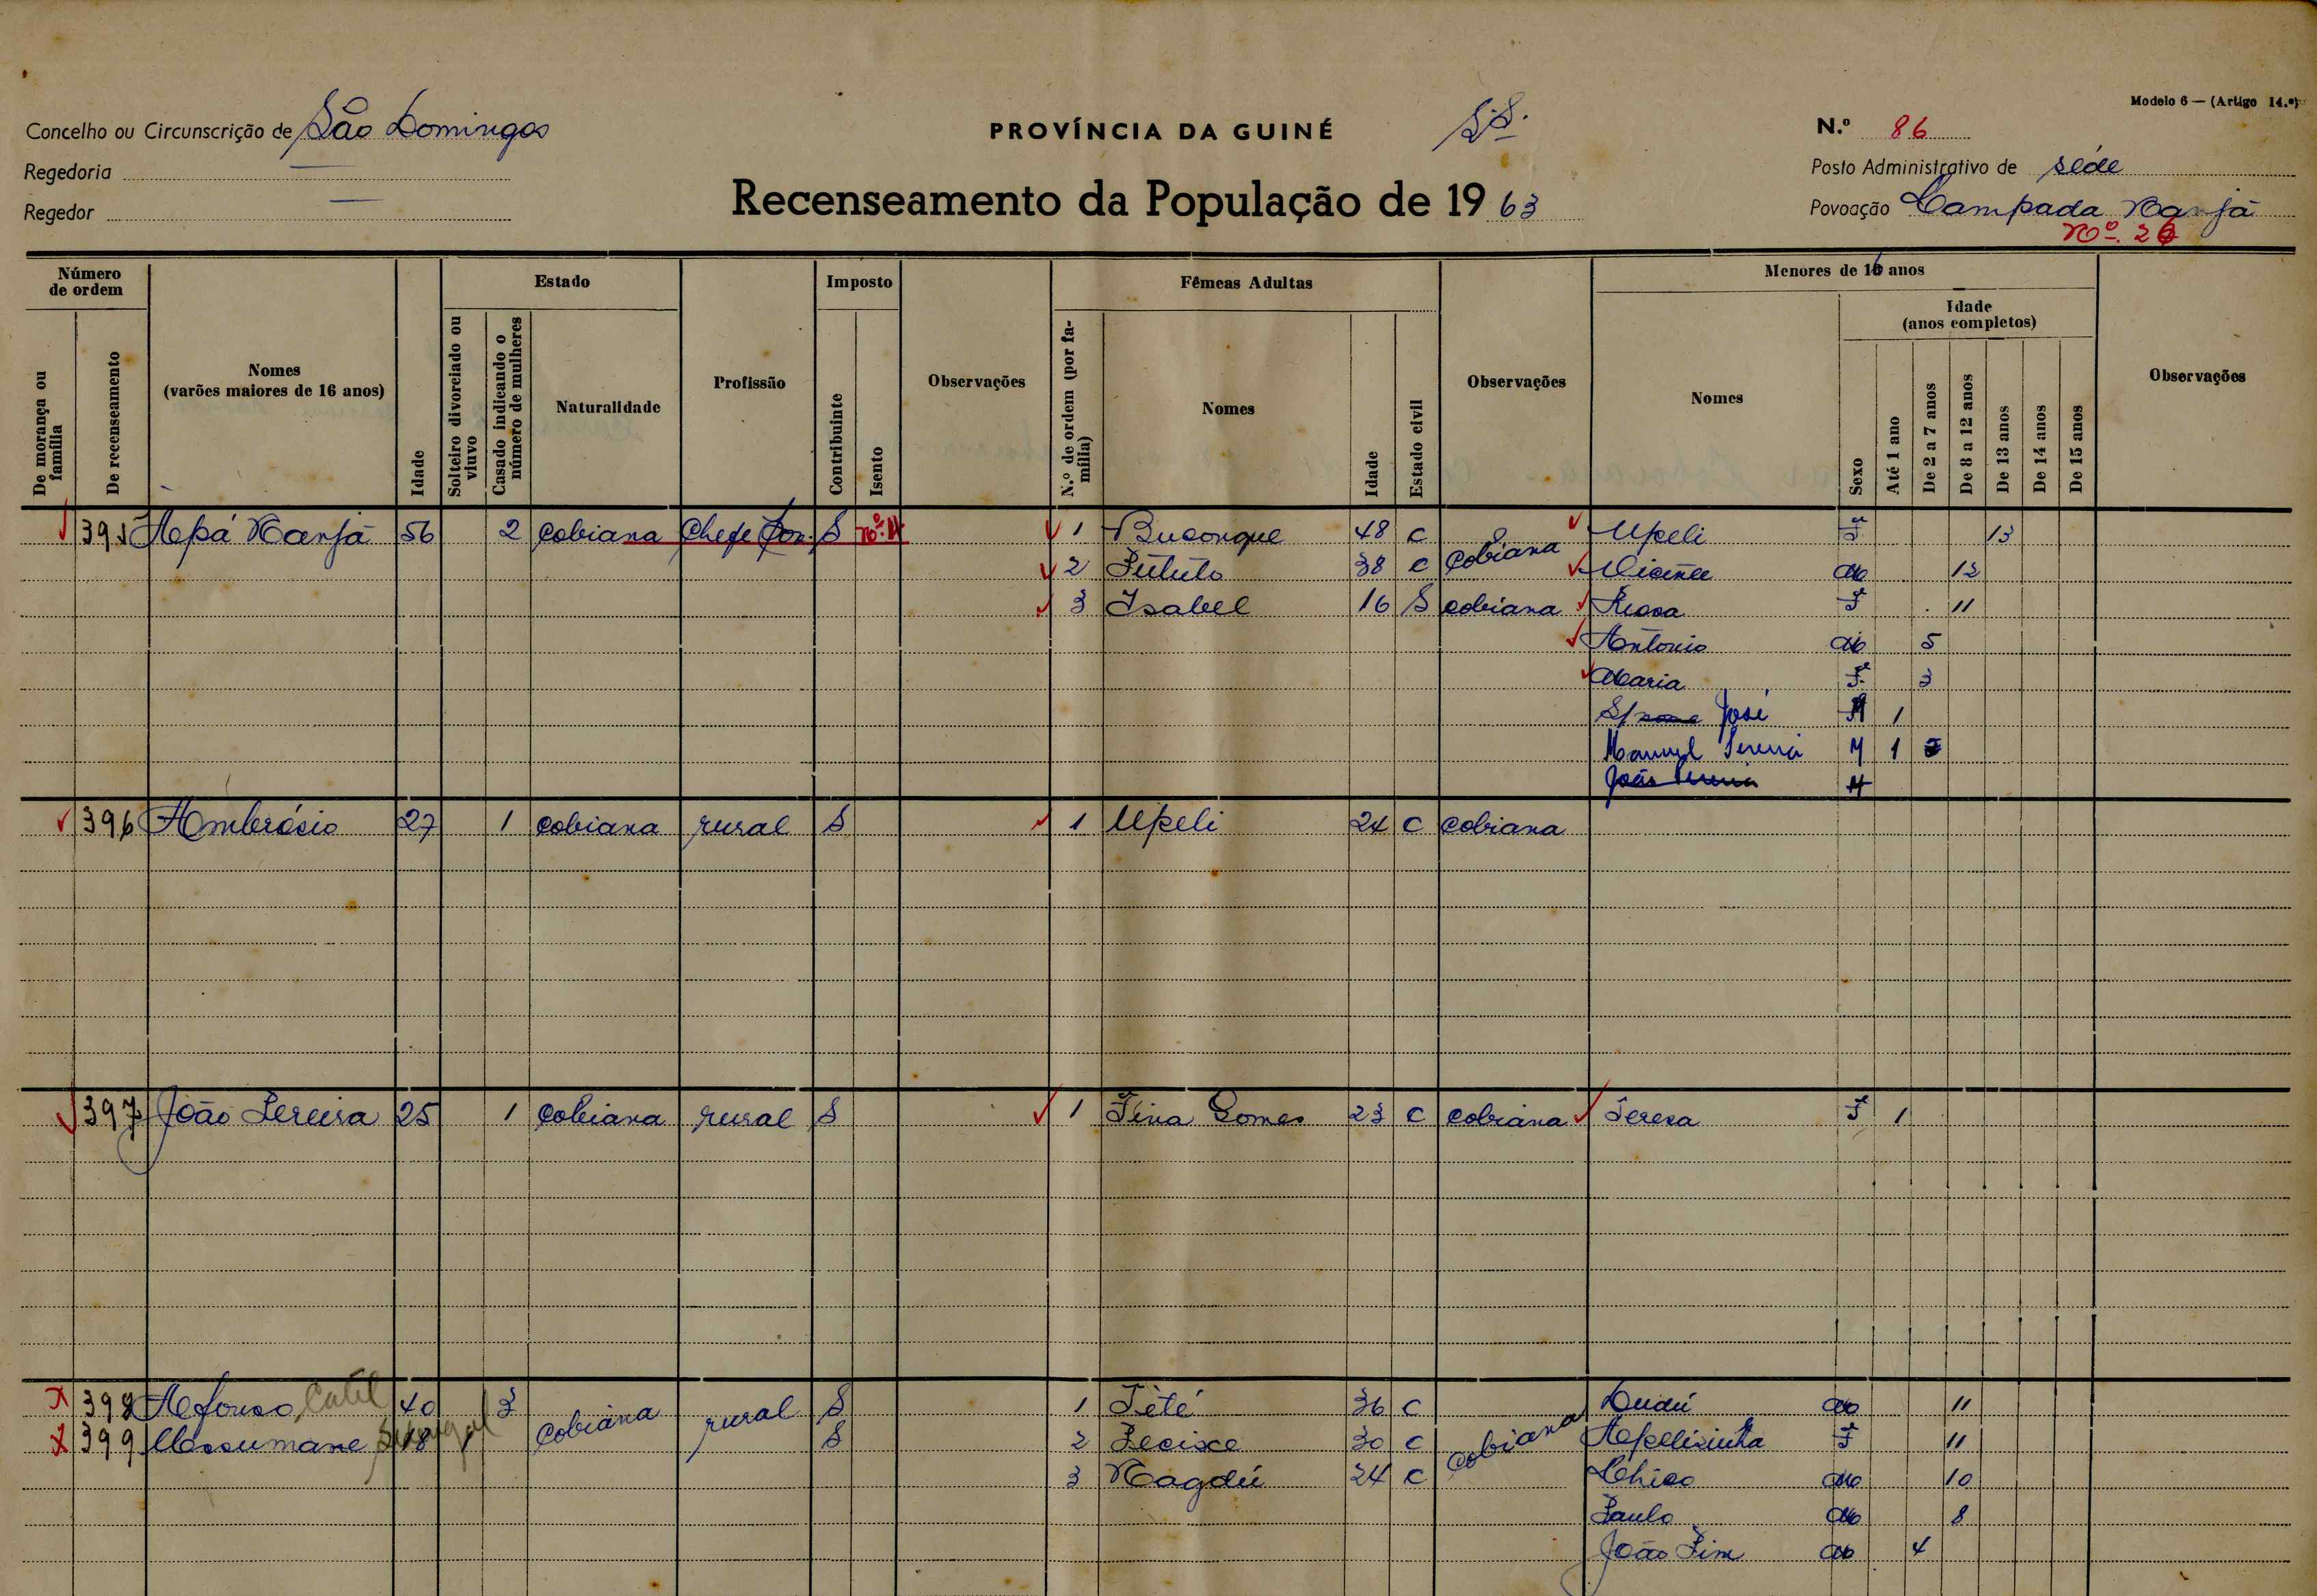 Modelo 6 — (Artigo 14.º)
Concelho ou Circunscrição de São Domingos
PROVÍNCIA DA GUINÉ
N.º 86
Regedoria —
Posto Administrativo de séde
Regedor —
Recenseamento da População de 19 63
Povoação Campada Nanjá
Nº. 26
Número de ordem
De morança ou família
De recenseamento
Nomes
(varões maiores de 16 anos)
Idade
Estado
Solteiro divorciado ou viuvo
Casado indicando o número de mulheres
Naturalidade
Profissão
Imposto
Contribuinte
Isento
Observações
Fêmeas Adultas
N.º de ordem (por família)
Nomes
Idade
Estado civil
Observações
Menores de 16 anos
Nomes
Sexo
Idade
(anos completos)
Até 1 ano
De 2 a 7 anos
De 8 a 12 anos
De 13 anos
De 14 anos
De 15 anos
Observações
395 Apá Nanjá 56 2 Cobiana Chefe S 1 Buconque 48 C Cobiana Upeli F 13
2 Tútúto 38 C Vicente M 12
3 Isabel 16 S cobiana Rosa F 11
António M 5
Maria F 3
José M 1
Manuel Pereira M 1
João Pereira M
396 Ambrósio 27 1 cobiana rural S 1 Upeli 24 C cobiana
397 João Pereira 25 1 cobiana rural S 1 Tina Gomes 23 C cobiana Teresa F 1
398 Afonso 40 3 cobiana rural S 1 Tété 36 C cobiana Dudú M 11
399 Assumane Senegal 18 S 2 30 C Apelisinha F 11
3 Nagdú 24 C Chico M 10
Paulo M 8
João M 4